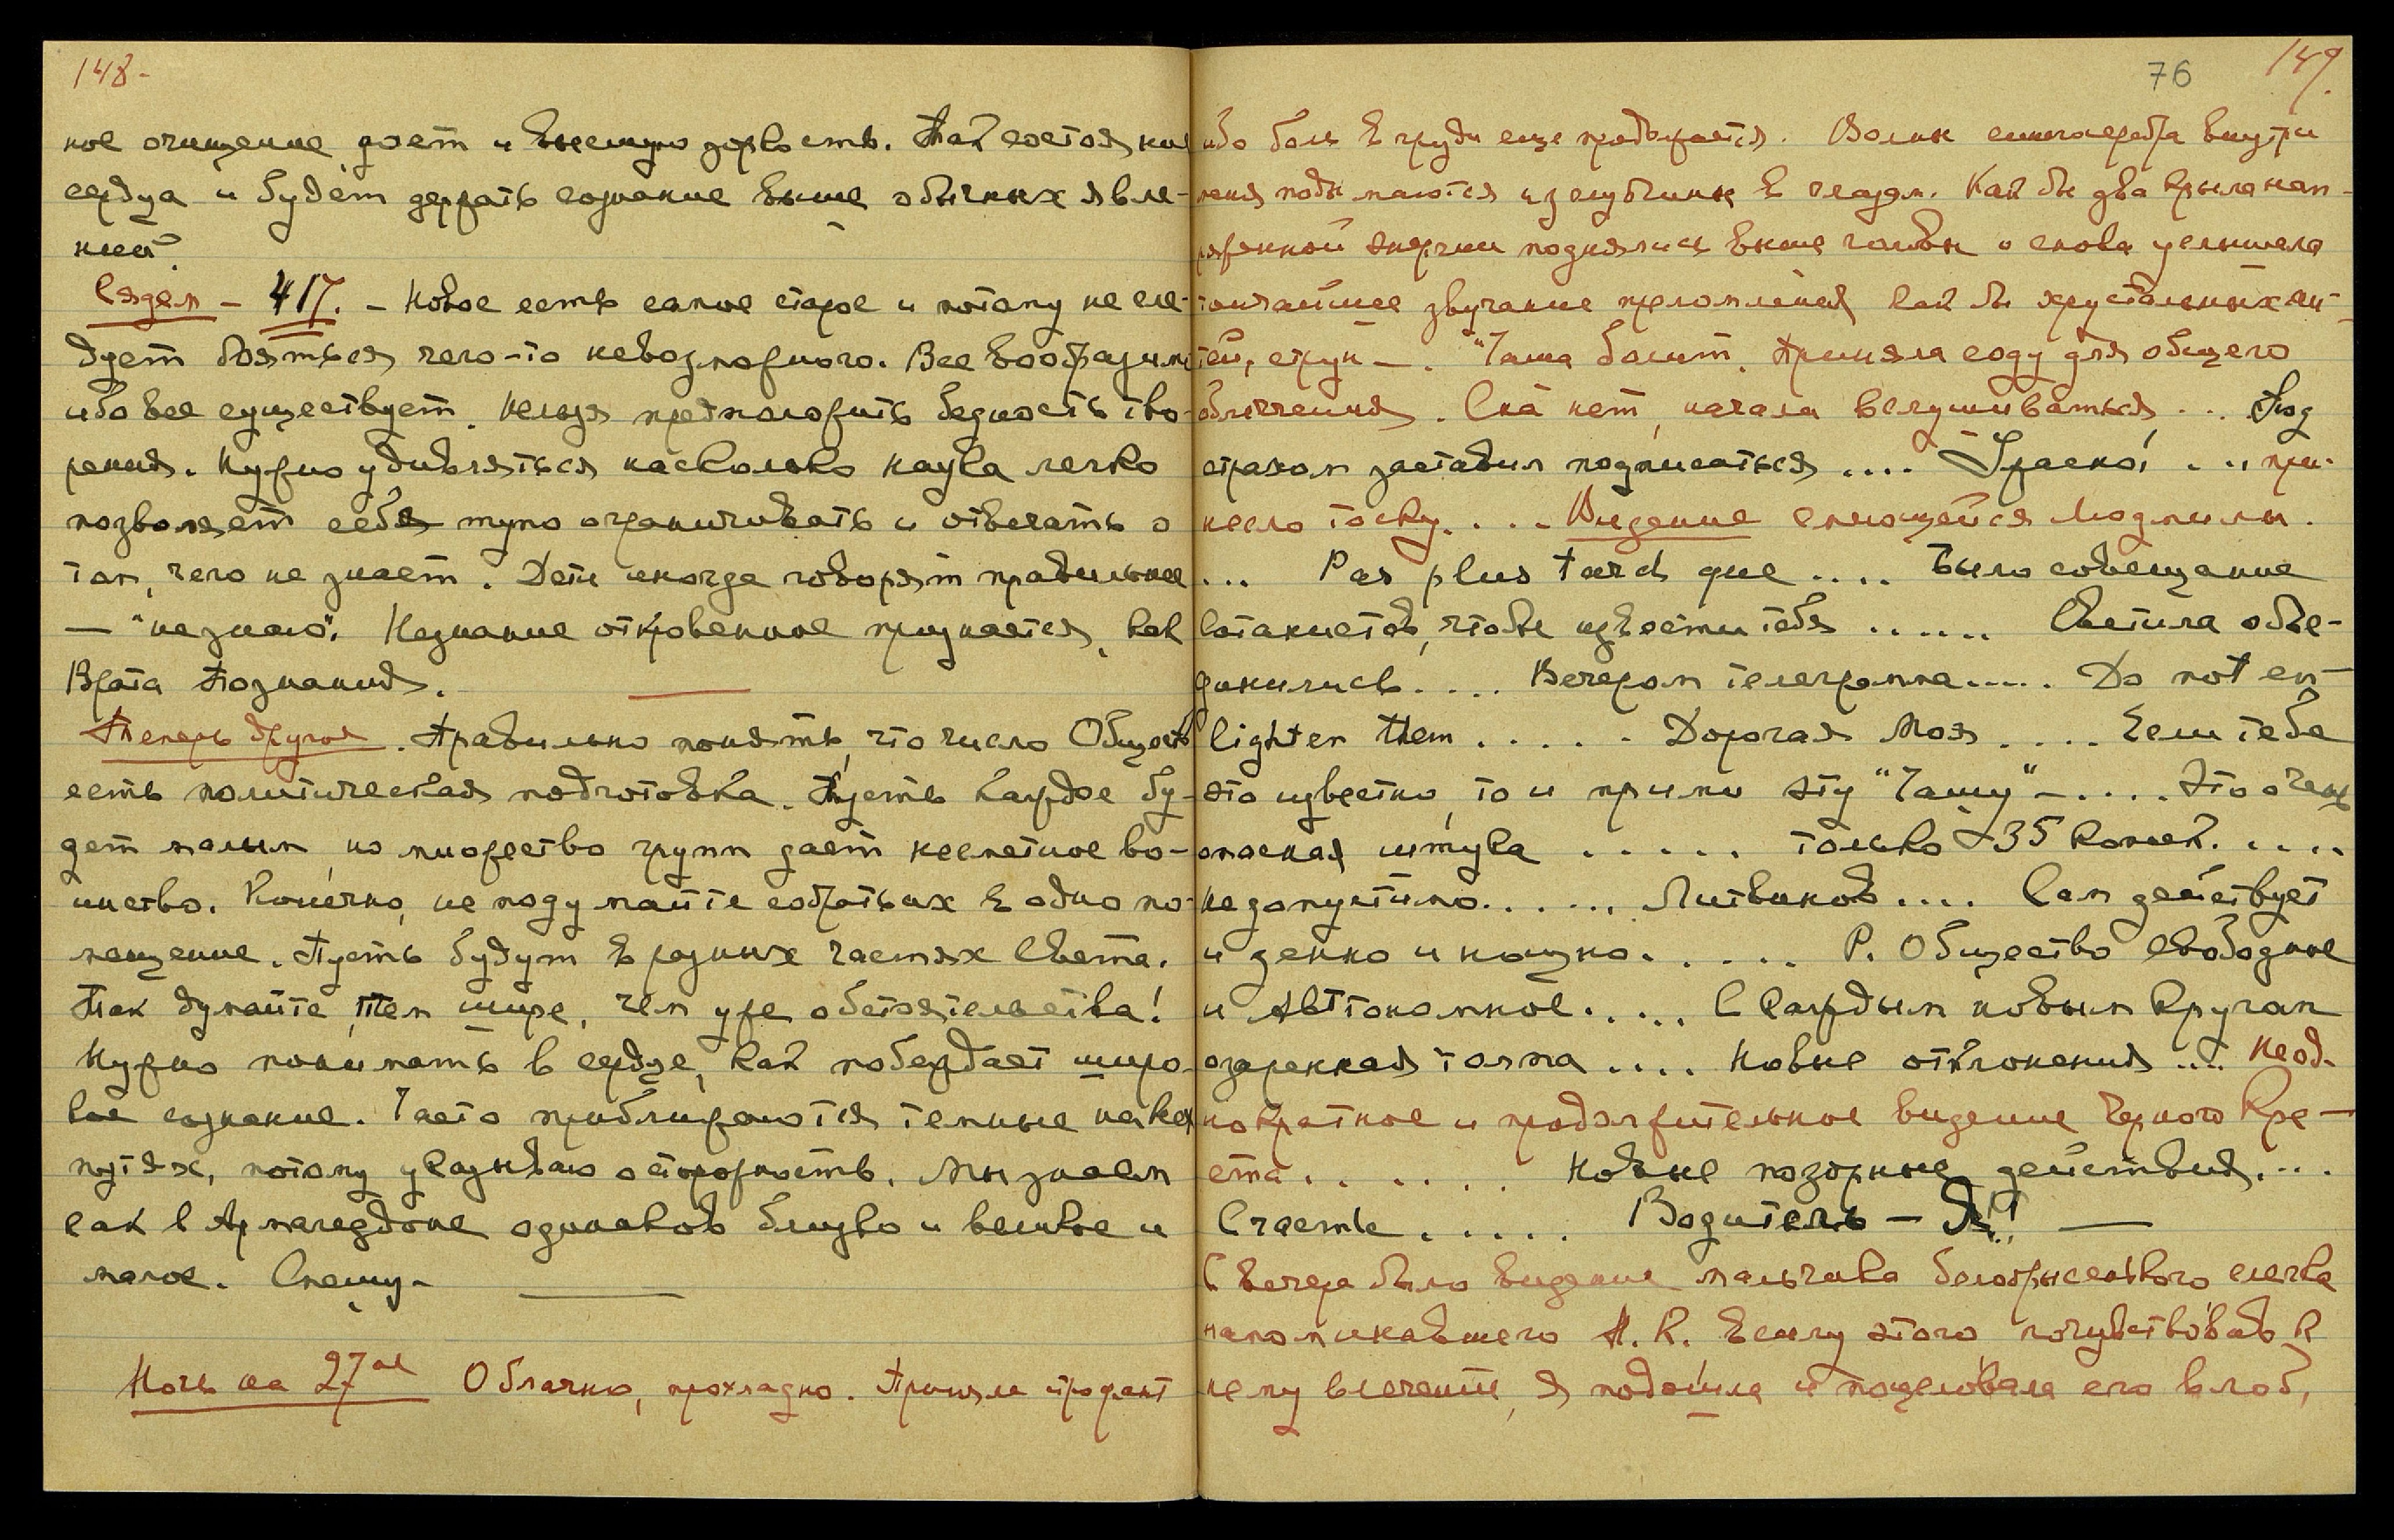 148-
ное очищение дает и высшую зоркость. Так состояние
сердца и будет держать сознание выше обычных явле-
ний.
Сядем - 417. - Новое есть самое старое и потому не сле-
дует бояться чего-то невозможного. Все вообразимо
ибо все существует. Нельзя предположить бедность тво-
рения. Нужно удивляться насколько наука легко
позволяет себя тупо ограничивать и отвечать о
том, чего не знает. Дети иногда говорят правильнее
— "не знаю". Незнание откровенное признается, как
Врата Познания.
Теперь другое. Правильно понять, что число Обществ
есть политическая подготовка. Пусть каждое бу-
дет малым но множество групп дает несметное во-
инство. Конечно, не подумайте собрать их в одно по-
мещение. Пусть будут в разных частях Света.
Так думайте, тем шире, чем уже обстоятельства!
Нужно понимать в сердце, как побеждает широ-
кое сознание. Часто приближаются темные на всех
путях, потому указываю осторожность. Мы знаем
как в Армагеддоне одинаково близко и великое и
малое. Спешу-
Ночь на 27ое Облачно, прохладно. Приняла строфант
76 149.
ибо боль в груди еще продолжается. Волны синего серебра внутри
меня подымаются из глубины к глазам. Как бы два крыла нап-
ряженной энергии поднялись выше головы и снова услышала
тончайшее звучание преломления как бы хрустальных ни-
тей, струн —. "Чаша болит. Приняла соду для общего
облегчения. Сна нет, начала вслушиваться... Под
страхом заставил подписаться .... Ужасно! ... при-
несло тоску. ... Видение смеющейся Людмилы.
... Pas plus tard que .... Было совещание
сатанистов, чтобы извести тебя ...... Светила объе-
динились.... Вечером телеграмма..... Do not en-
lighten them ..... Дорогая Моя .... Если тебе
это известно, то и прими эту "Чашу" — .... Это очень
опасная штука ..... только 35 копеек. ....
недопустимо...... Литвинов .... Сам действует
и денно и нощно. ..... Р. Общество свободное
и Автономное. .... С каждым новым кругом
озаренная толпа .... Новые отклонения .... Неод-
нократное и продолжительное видение Черного Кре-
ста ...... Новые позорные действия....
Счастье ..... Водитель — Я!! —
С вечера было видение мальчика белобрысенького слегка
напоминавшего А. К. Вслед этого, почувствовав к
нему влечение, я подошла и поцеловала его в лоб,